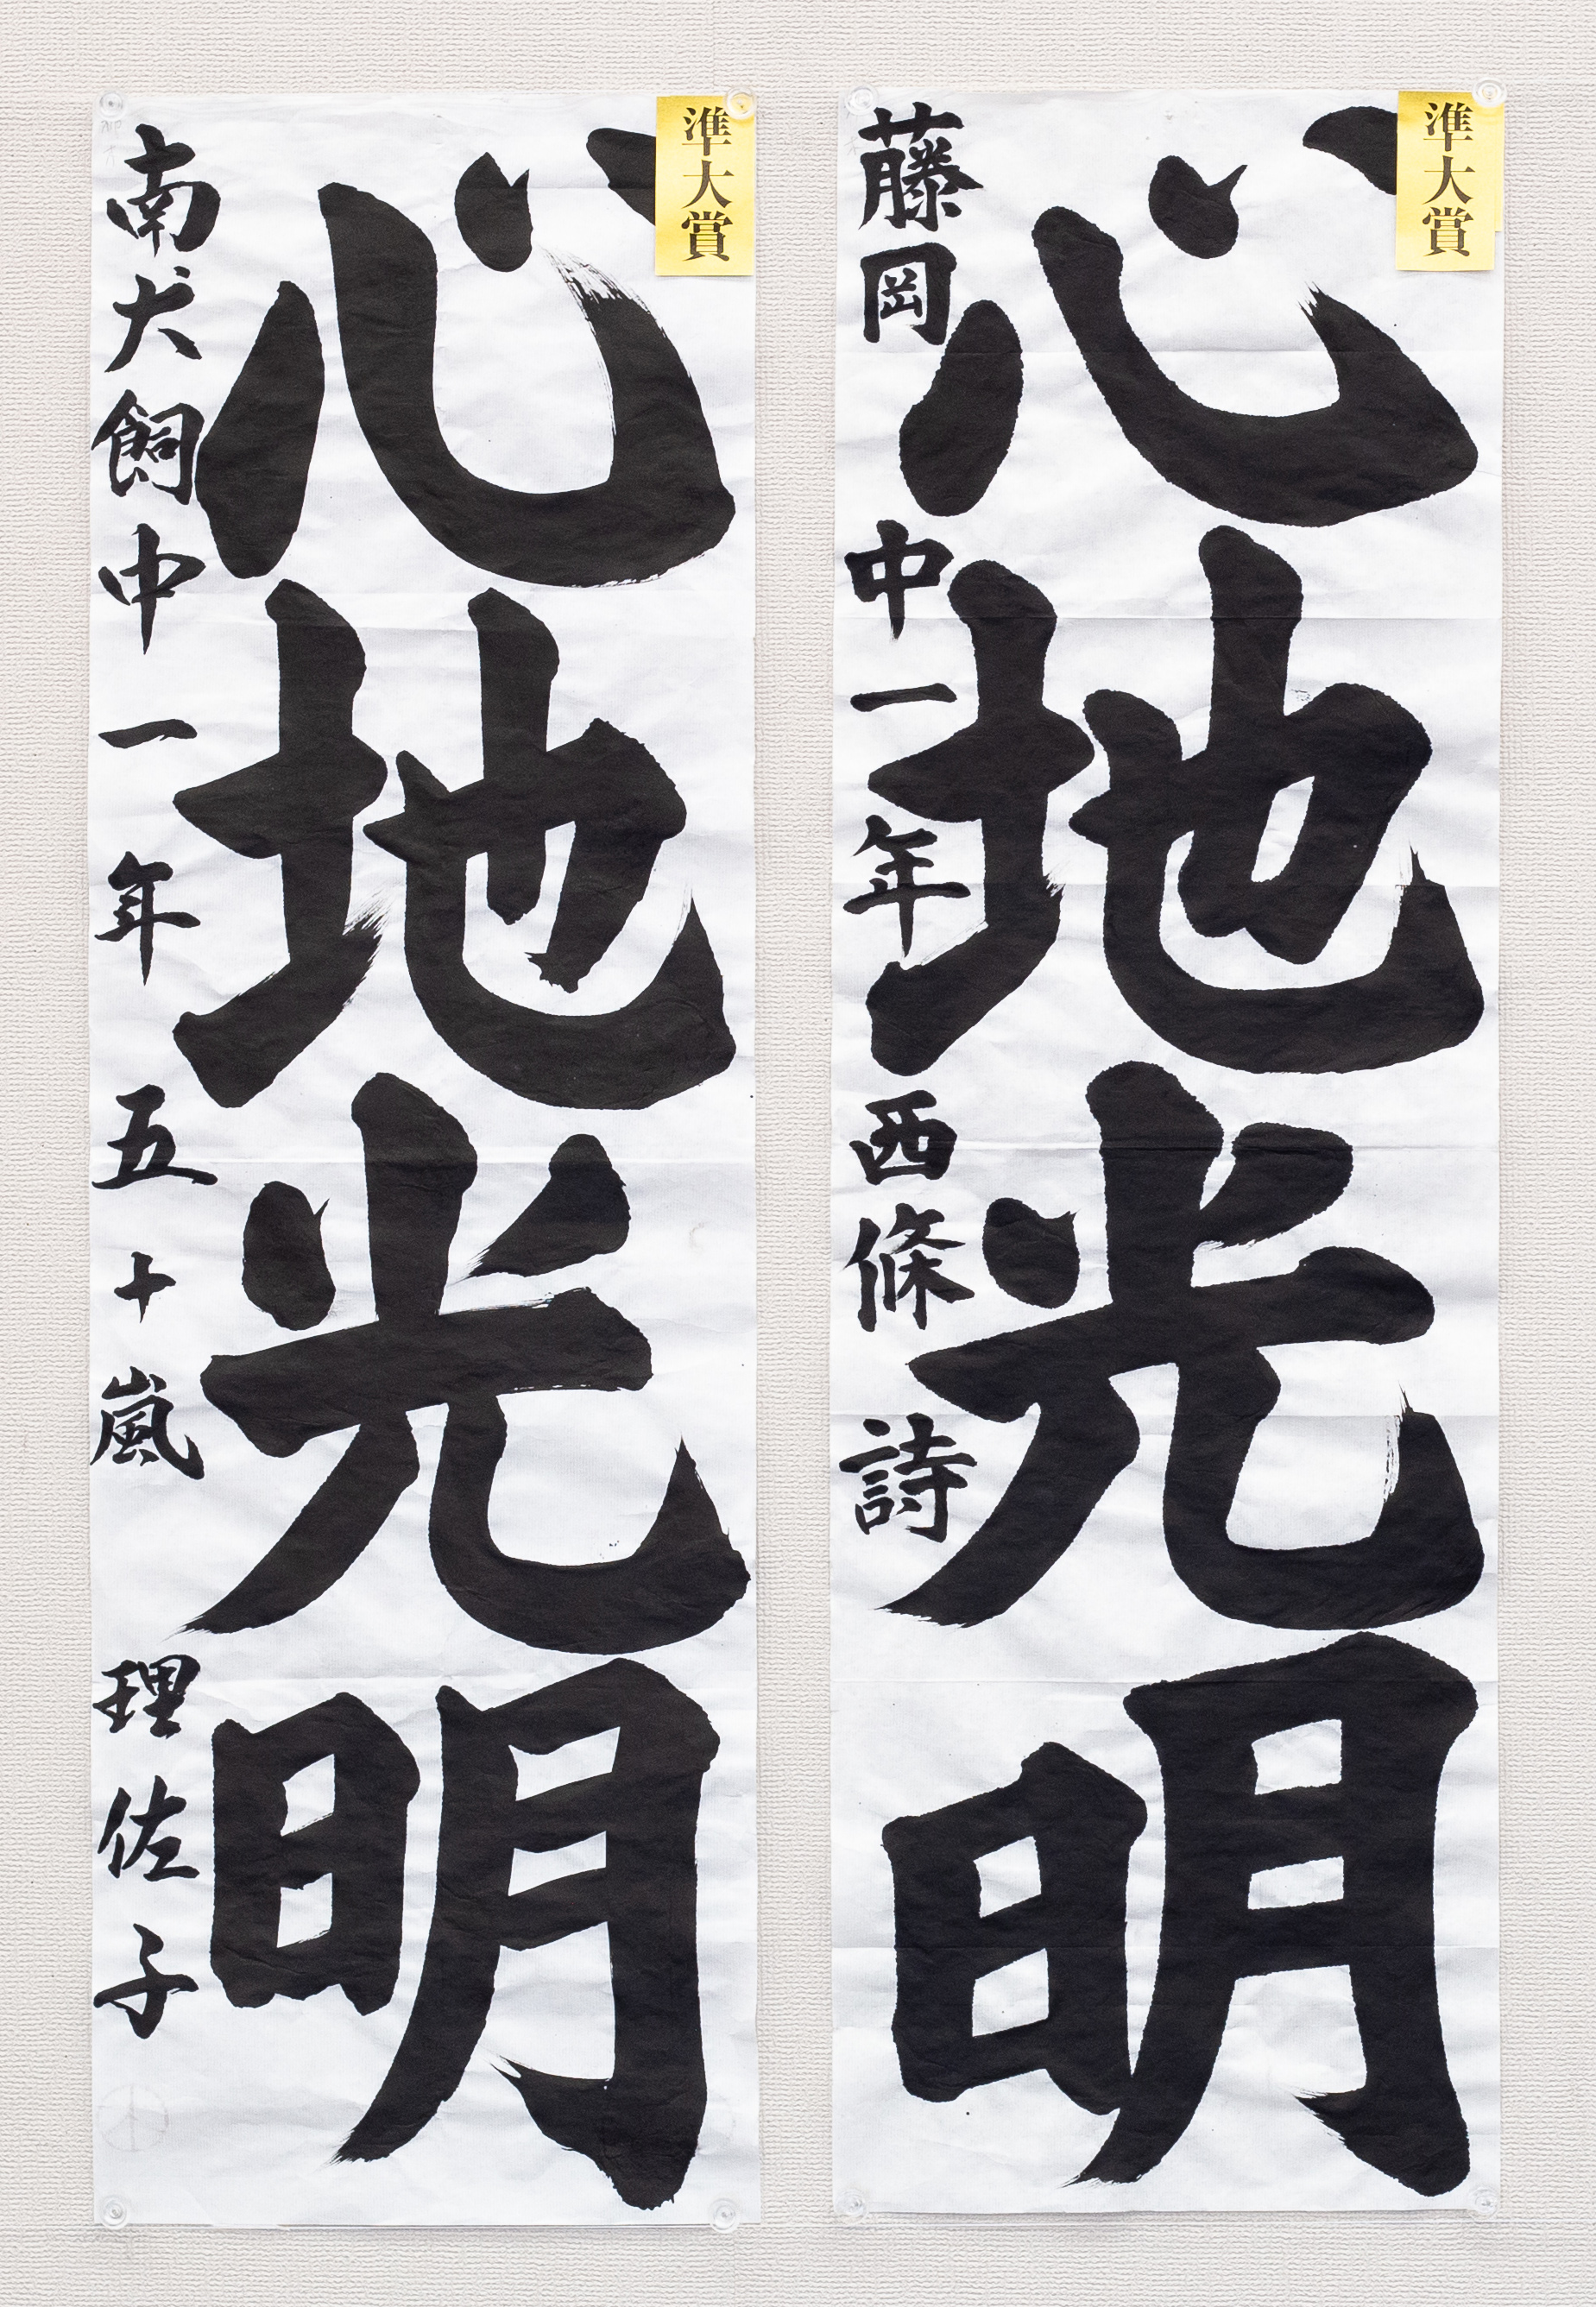 準大賞
心地光明
藤岡中一年 西條 詩
準大賞
心地光明
南犬飼中一年 五十嵐 理佐子